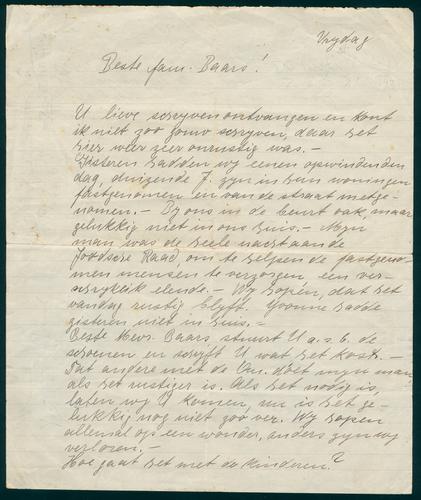 Vrydag
Beste fam. Baars!
U lieve schryven ontvangen en kont
ik niet zoo gouw schryven, daar het
hier weer zeer onrustig was. -
Gisteren hadden wy eenen opwindenden
dag, duizende J. zyn in hun woningen
fastgenomen en van de straat metge-
nomen. - By ons in de beurt ook, maar
gelukkig niet in ons huis. - Myn
man was de heele nacht aan de
Joodsche Raad om te helpen de fastgeno-
men mensen te verzorgen een ver-
schrykkelik elende. - Wy hopen, dat het
vandag rustig blyft. Yvonne hadde
gisteren niet in huis. -
Beste Mevr. Baars, stuurt U a.s.b. de
schoenen en schryft U wat het kost. -
Dat andere met de Om. doet myn man,
als het rustiger is. Als het nodig is,
laten wy U komen, nu is het ge-
lukkig nog niet zoo ver. Wy hopen
allemal op een wonder, anders zyn wy
verloren. -
Hoe gaat het met de kinderen?